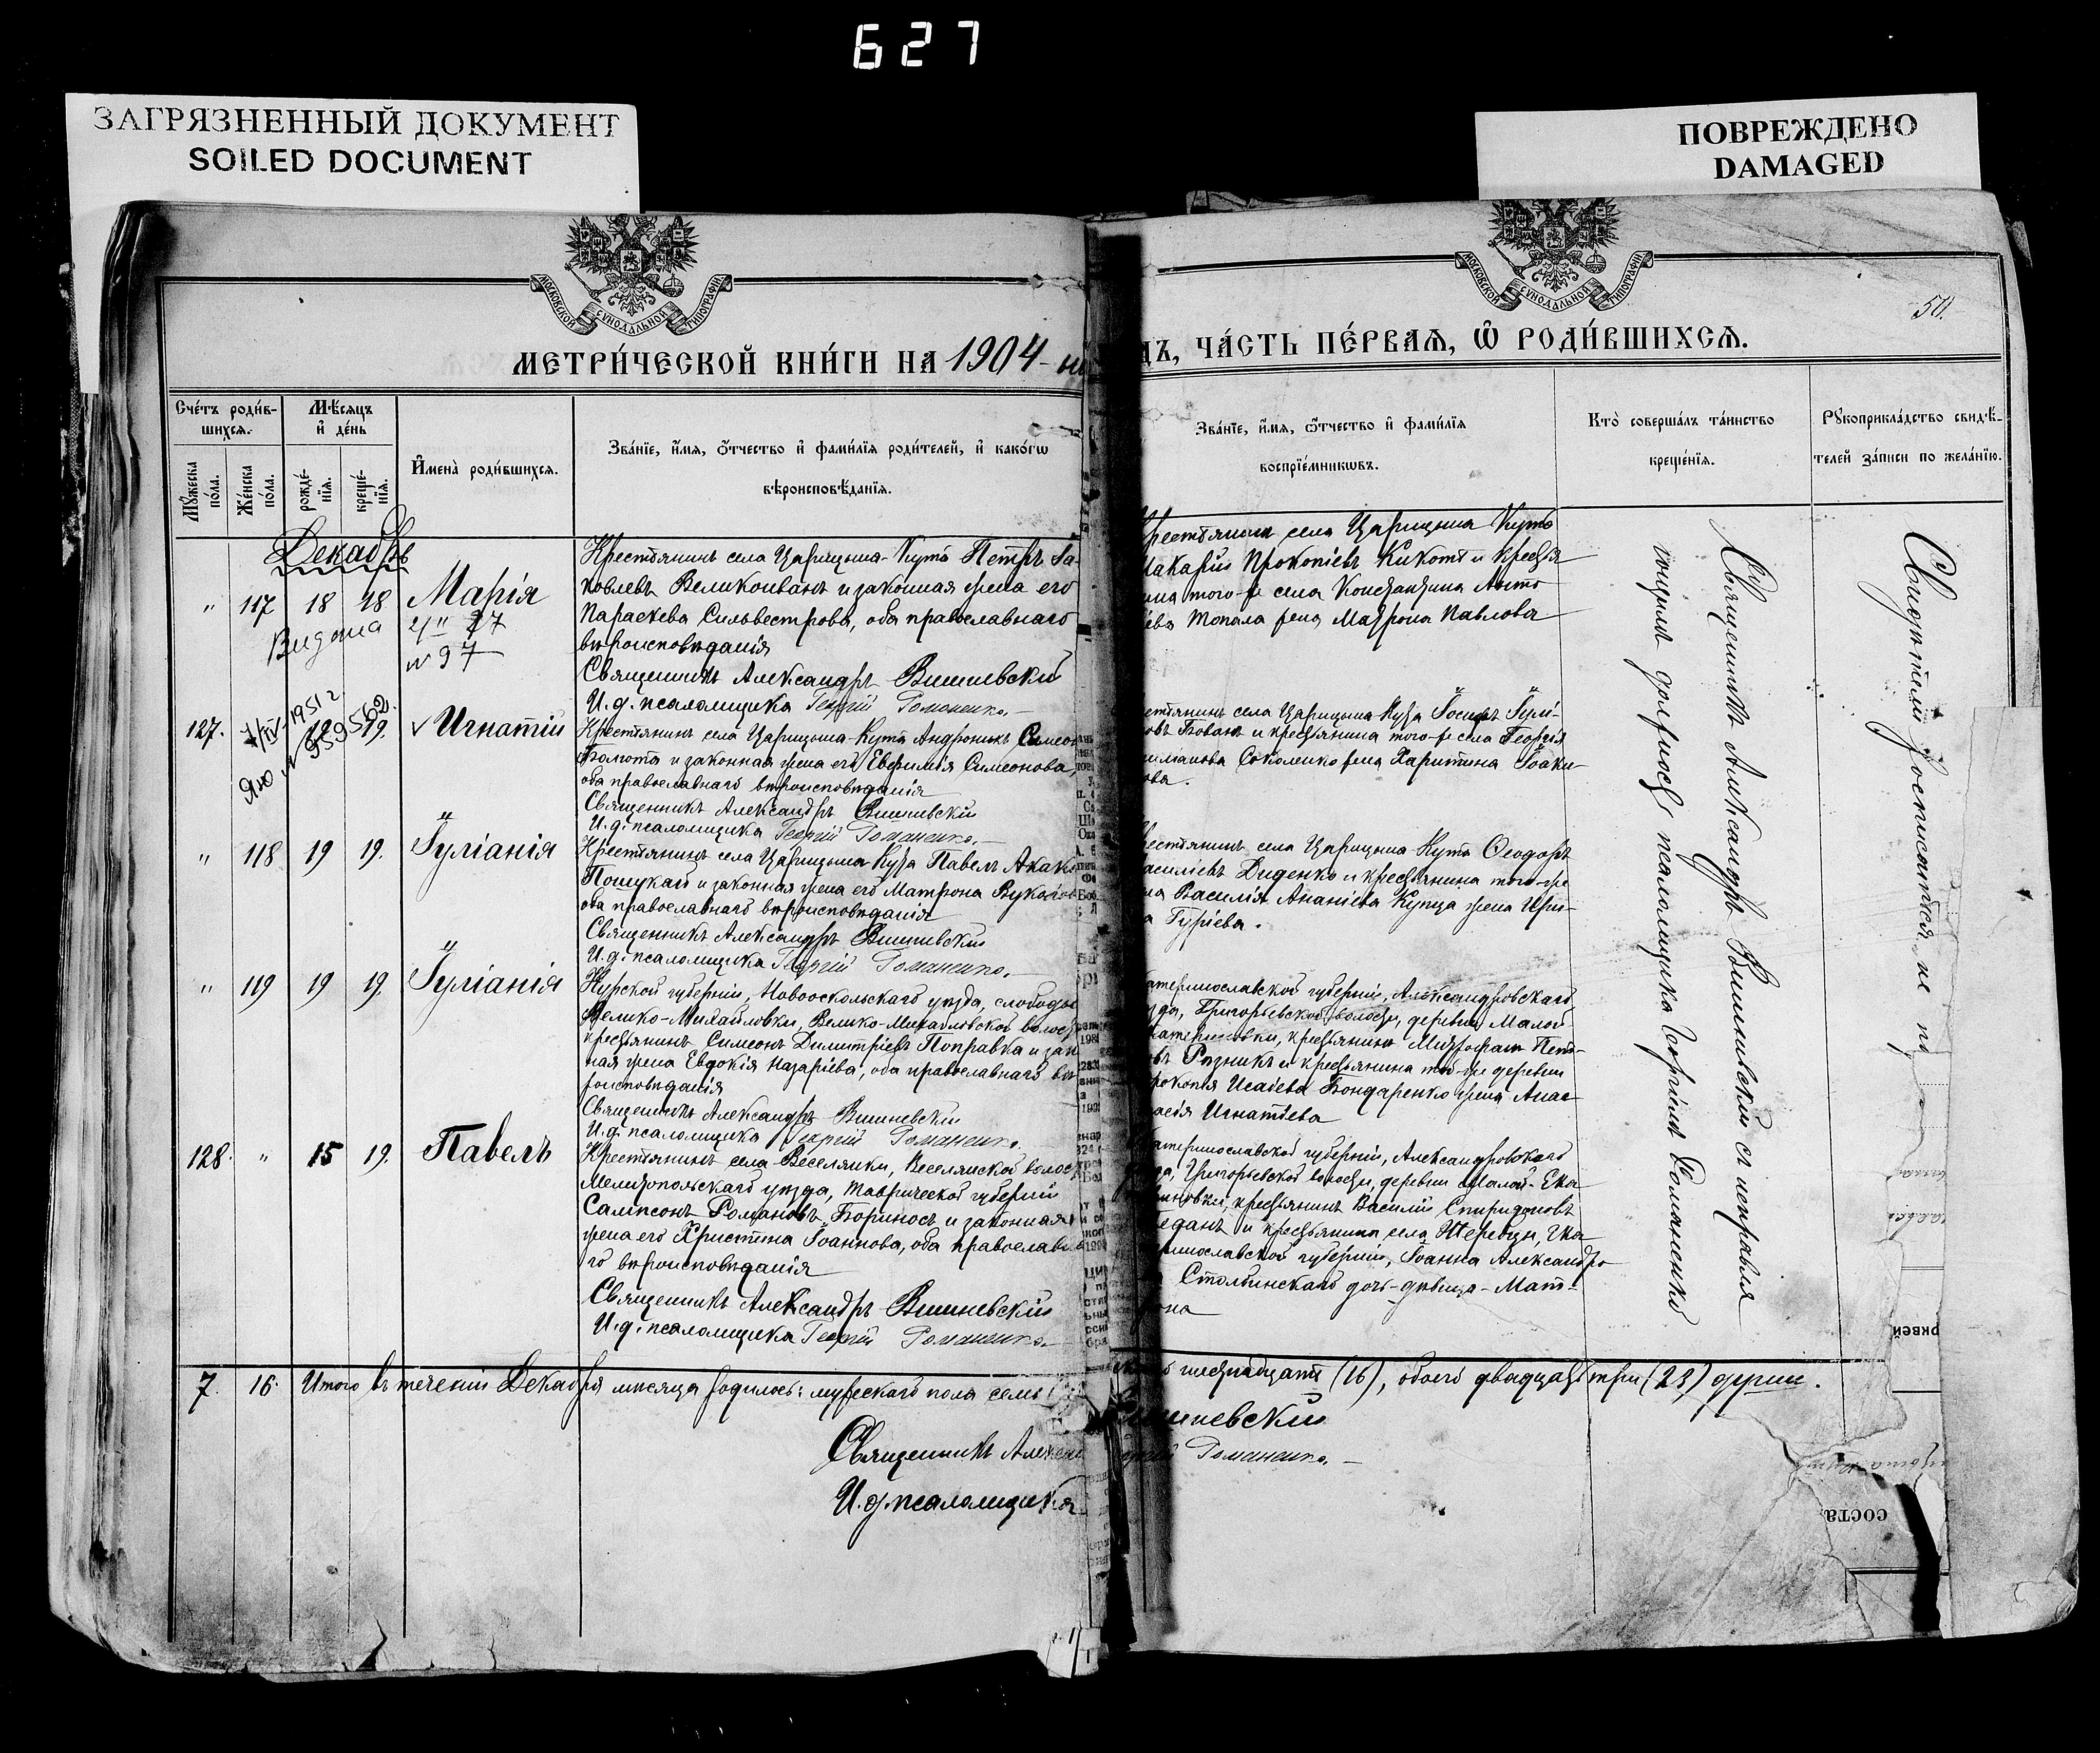 627
ЗАГРЯЗНЕННЫЙ ДОКУМЕНТ
SOILED DOCUMENT
ПОВРЕЖДЕНО
DAMAGED
МОСКОВСКОЙ СУНОДАЛЬНОЙ ТИПОГРАФІИ.
МОСКОВСКОЙ СУНОДАЛЬНОЙ ТИПОГРАФІИ.
50.
МЕТРИ́ЧЕСКОЙ КНИ́ГИ НА 1904-
ДЪ, ЧА́СТЬ ПЕ́РВАѦ, Ѽ РОДИ́ВШИХСѦ.
Сче́тъ роди́в-
шихсѧ.
Мꙋ́жеска по́ла.
Же́нска по́ла.
Мѣ́сяцъ
и҆ де́нь
рожде́-
нїѧ.
креще́-
нїѧ.
И҆мена̀ роди́вшихсѧ.
Зва́нїе, и҆́мѧ, ѻ҆́тчество и҆ фами́лїѧ роди́телей, и҆ како́гѡ
вѣроисповѣ́данїѧ.
Зва́нїе, и҆́мѧ, ѻ҆́тчество и҆ фами́лїѧ
воспрїе́мникѡвъ.
Кто̀ соверша́лъ та́инство
креще́нїѧ.
Рꙋкоприкла́дство свидѣ́-
телей за́писи по жела́нїю.
Декабрь
" 117 18 18 Марія
Видана
№ 97
Крестьянинъ села Царицына-Кута Петръ Іа-
ковлевъ Великоиванъ и законная жена его
Параскева Сильвестрова, оба православнаго
вѣроисповѣданія
Священникъ Александръ Вишневскій
И. д. псаломщика Георгій Романенко.
Крестьянинъ села Царицына Кута
Макарій Прокопіевъ Кикотъ и крестья
нина того-же села Константина Анто
ева Топала жена Матрона Павлова
127. 19. Игнатій
1951 г
№ 959562.
Крестьянинъ села Царицына-Кута Андроникъ Симео
Болюта и законная жена его Евфимія Симеонова,
оба православнаго вѣроисповѣданія
Священникъ Александръ Вишневскій
И. д. псаломщика Георгій Романенко.
естянинъ села Царицына Кута Іосифъ Іулі-
овъ Бованъ и крестьянина того-же села Георгія
Соколенко жена Харитина Іоаки-
ова.
" 118 19 19. Іуліанія
Крестьянинъ села Царицына Кута Павелъ Акаки
и законная жена его Матрона Вуколов
оба православнаго вѣроисповѣданія
Священникъ Александръ Вишневскій
И. д. псаломщика Георгій Романенко.
естянинъ села Царицына Кута Ѳеодоръ
асиліевъ Диденко и крестьянина того-же
ла Василія Ананіева Купца жена Ири-
а Гуріева.
" 119 19 19. Іуліанія
Курской губерніи, Новооскольскаго уѣзда, слободы
Велико-Михайловки, Велико-Михайловской волост
крестьянинъ Симеонъ Димитріевъ Поправка и зак
ная жена Евдокія Назаріева, оба православнаго вѣ
роисповѣданія
Священникъ Александръ Вишневскій
И. д. псаломщика Георгій Романенко.
атеринославской губерніи, Александровскаго
зда, Григорьевской волости, деревни Малой-
катериновки, крестьянинъ Митрофанъ Пет-
овъ Рѣзникъ и крестьянина той-же деревни
рокопія Исаіева Бондаренко жена Анас-
асія Игнатіева
128. " 15 19. Павелъ
Крестьянинъ села Веселянки, Веселянской волос
Мелитопольскаго уѣзда, Таврической губерніи
Сампсонъ Романовъ Бориносъ и законная
жена его Христина Іоаннова, оба православна
го вѣроисповѣданія
Священникъ Александръ Вишневскій
И. д. псаломщика Георгій Романенко.
атеринославской губерніи, Александровскаго
да, Григорьевской волости, деревни Малой-Ека
риновки, крестьянинъ Василій Спиридоновъ
еданъ и крестьянина села Терсы, Ека
ринославской губерніи, Іоанна Александро
Столбинскаго дочь-дѣвица-Мат-
рона
Священникъ Александръ Вишневскій съ исправля
ющимъ должность псаломщика Георгіемъ Романенко
Свидѣтели росписаться не
7. 16. Итого въ теченіи Декабря мѣсяца родилось: мужескаго пола семь
шестнадцать (16), обоего двадцать три (23) душъ.
Священникъ Алекса
Вишневскій
И. д. псаломщика
Романенко.
рквей
соста